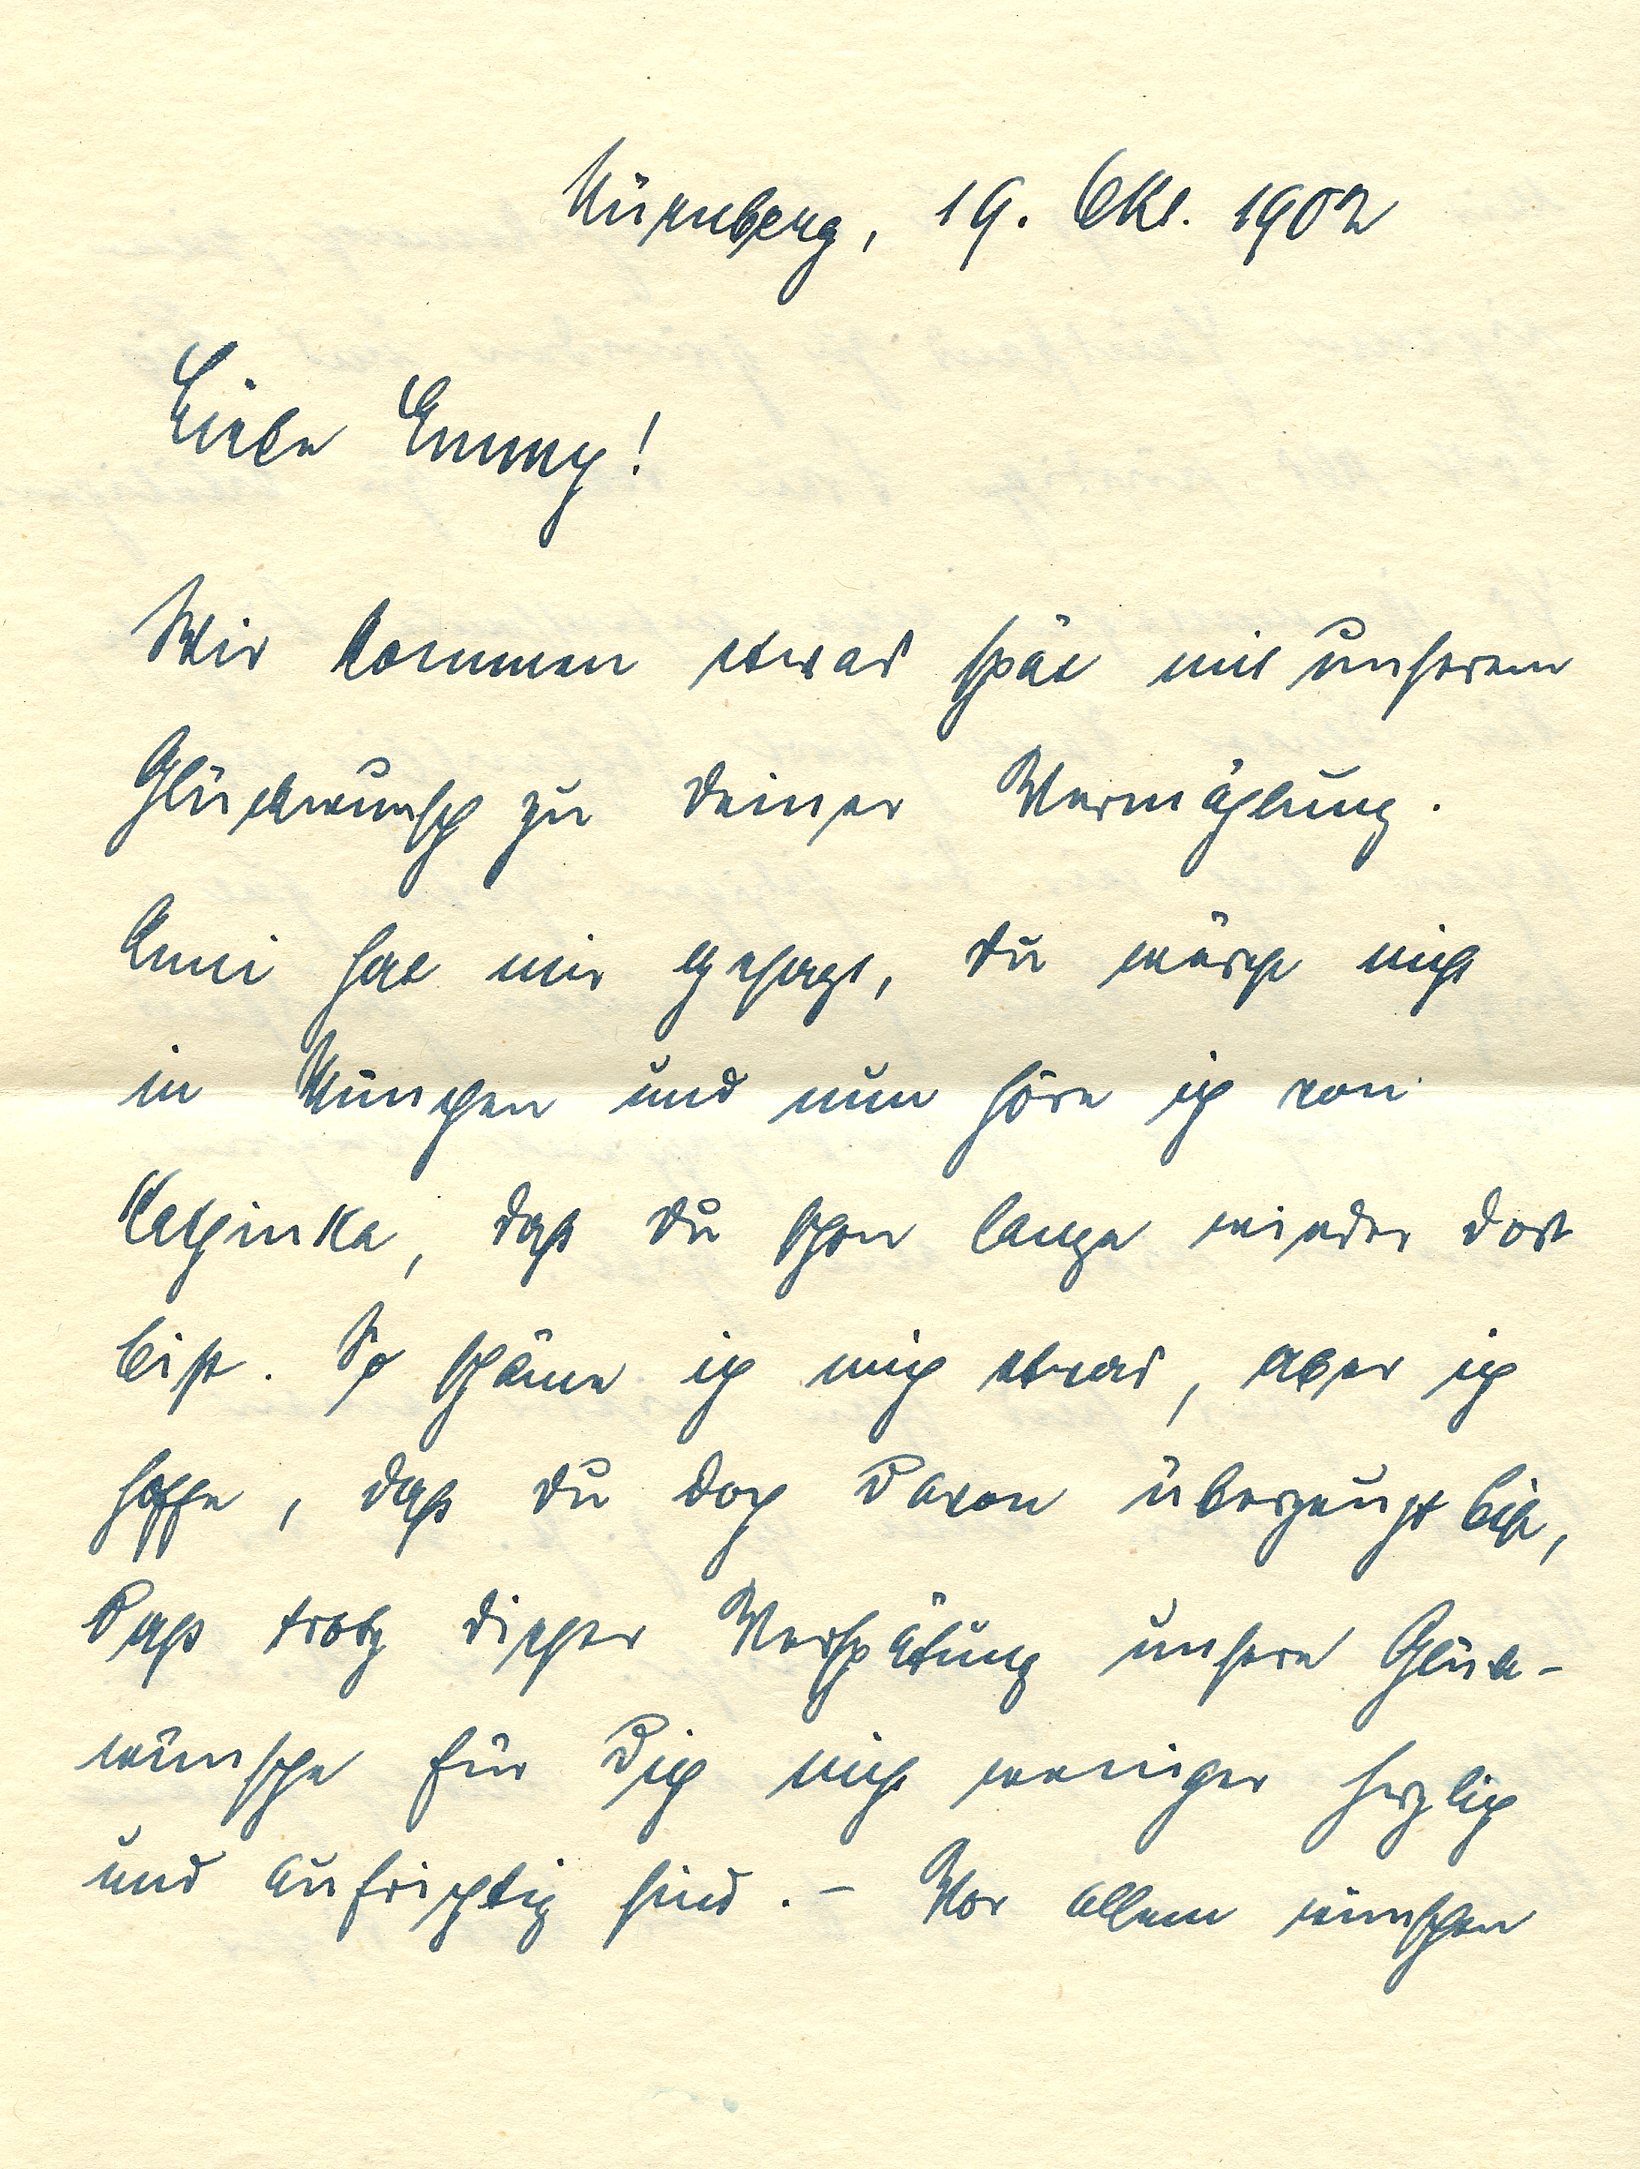 Nürnberg, 19. Okt. 1902
Liebe Emmy!
Wir kommen etwas spät mit unserem
Glückwunsch zu Deiner Vermählung.
Anni hat mir gesagt, Du wärst nicht
in München und nun höre ich von
Kathinka, daß Du schon lange wieder dort
bist. So schäme ich mich etwas, aber ich
hoffe, daß Du doch davon überzeugt bist,
daß trotz dieser Verspätung unsere Glück-
wünsche für Dich nicht weniger herzlich
und aufrichtig sind. – Vor allem wünschen